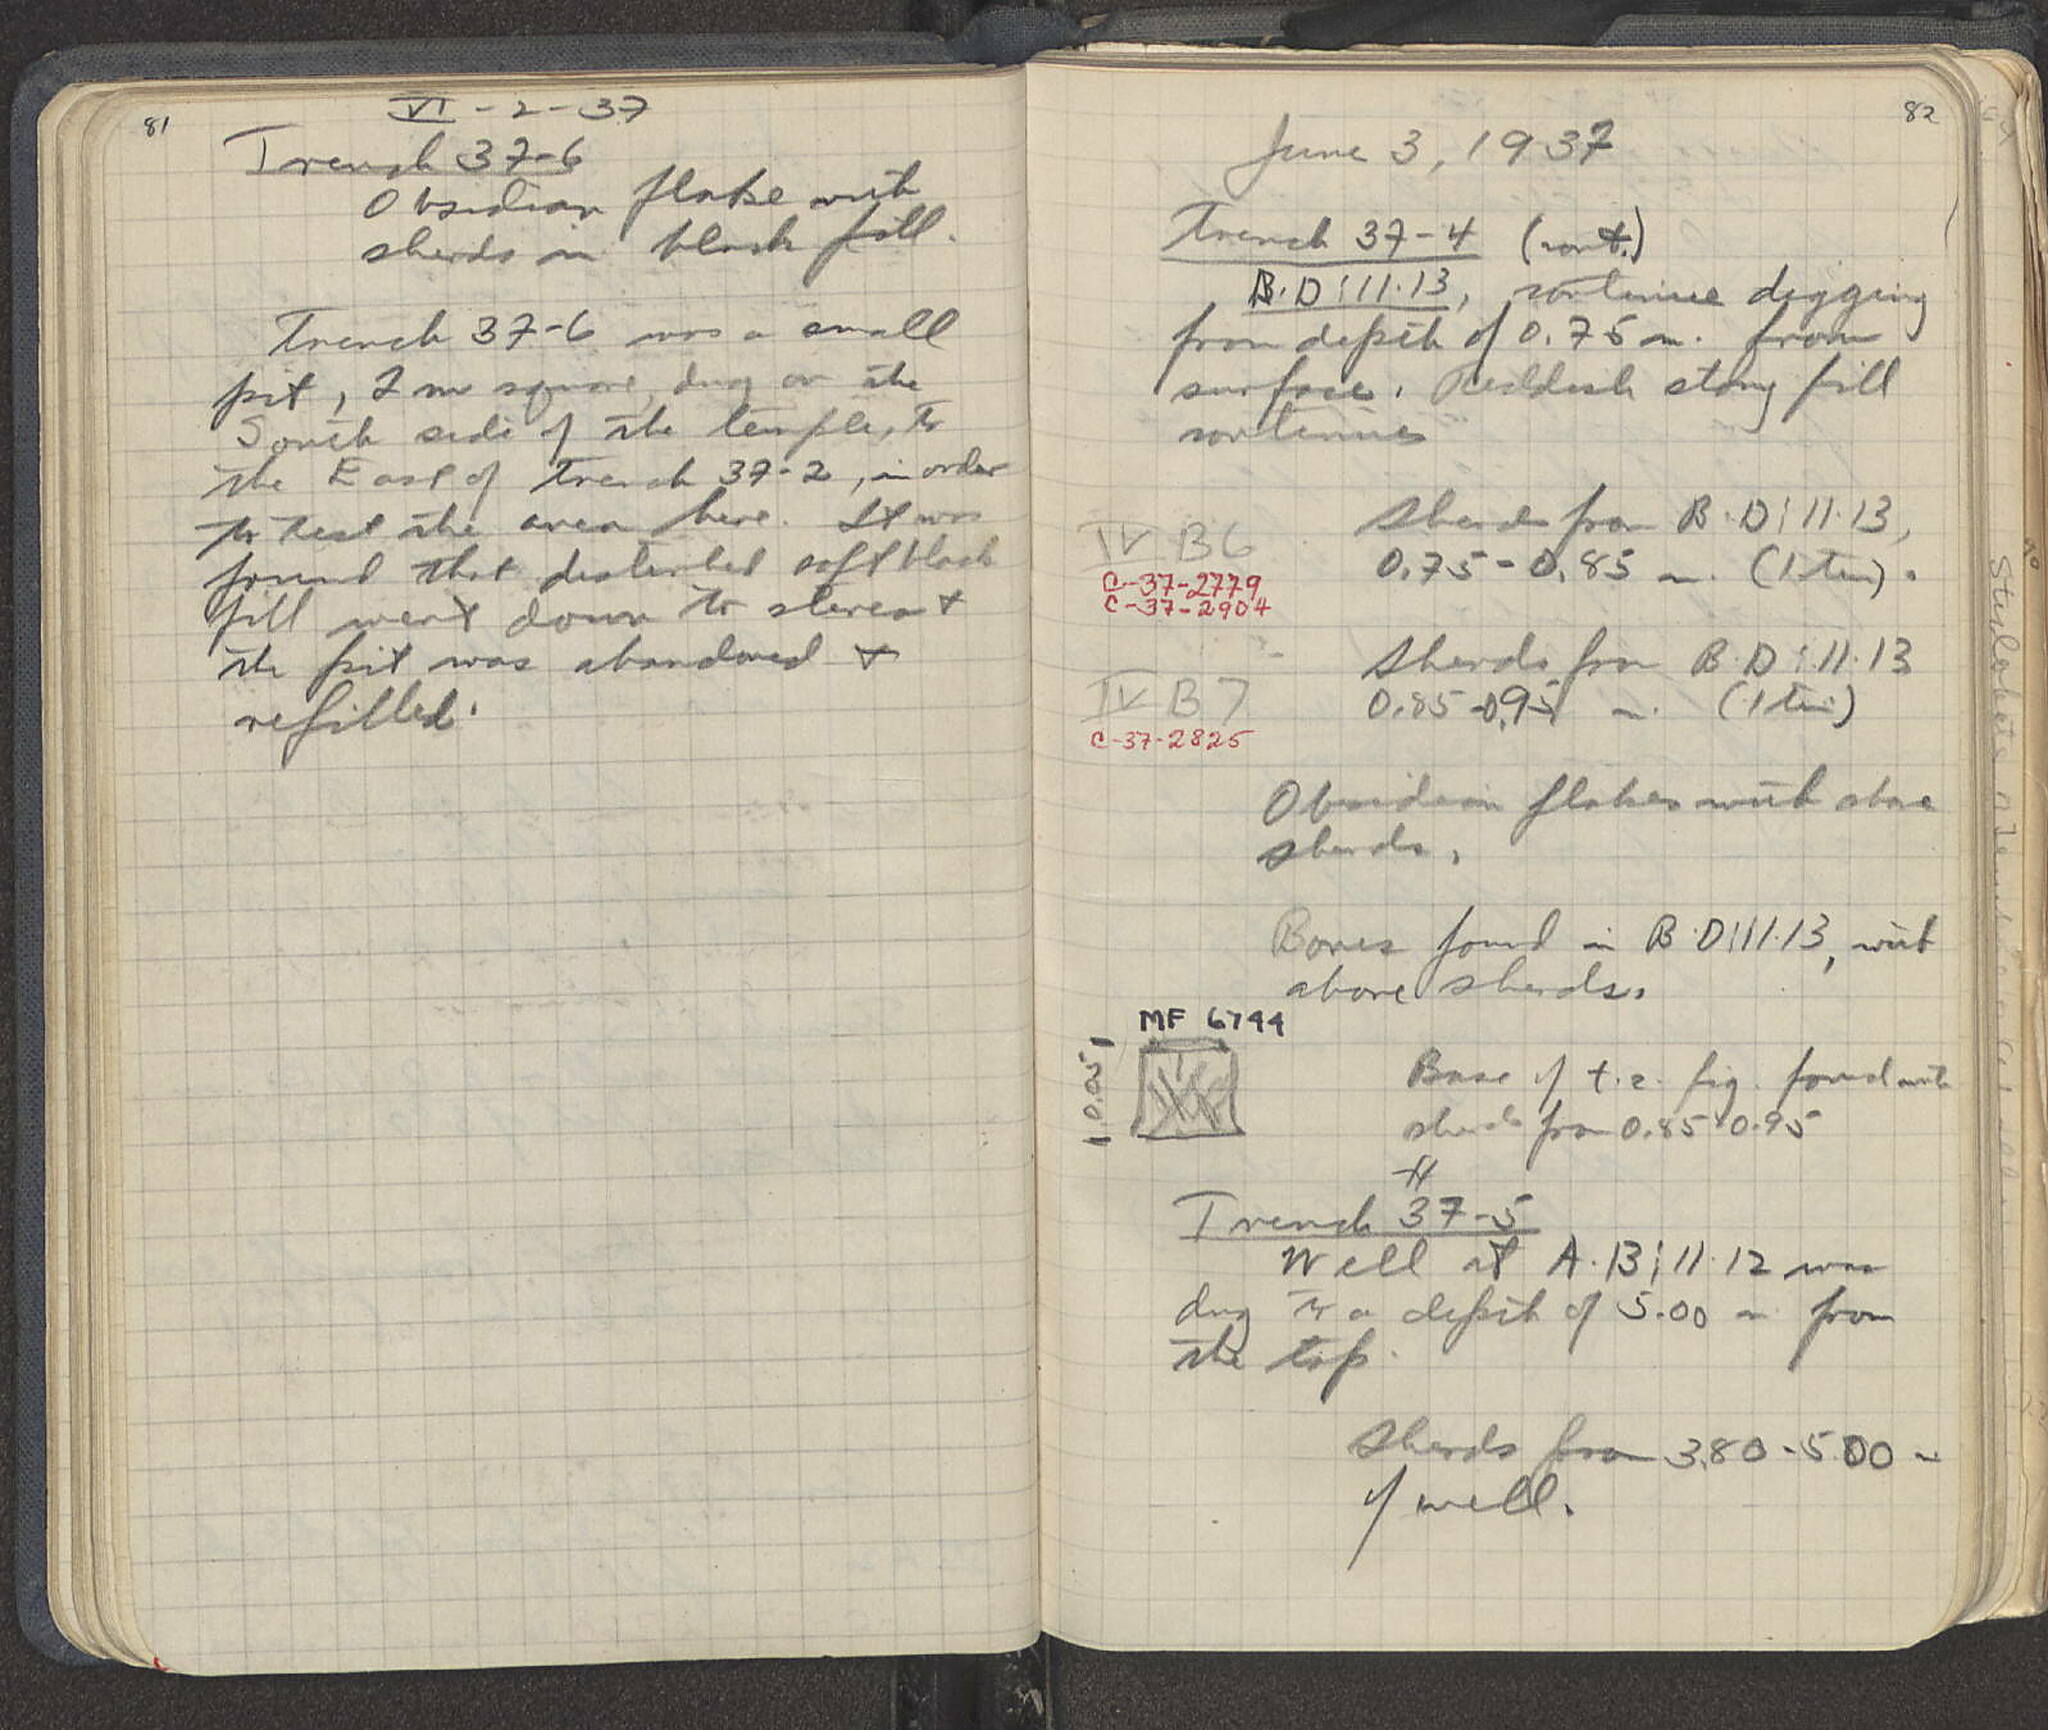 81
VI - 2 - 37
Trench 37-6
Obsidian flake with
sherds in black fill.
Trench 37-6 was a small
pit, 2 m square, dug on the
South side of the temple, to
the East of Trench 37-2, in order
to test the area here. It was
found that disturbed soft black
fill went down to stereo +
the pit was abandoned +
refilled.
82
June 3, 1937
Trench 37-4 (cont.)
B-D:11-13, continue digging
from depth of 0.75 m. from
surface. Reddish stony fill
continues
IV B6
C-37-2779
C-37-2904
Sherds from B-D:11-13,
0.75-0.85 m. (1 tin).
IV B7
C-37-2825
Sherds from B-D:11-13
0.85-0.95 m. (1 tin)
Obsidian flakes with above
sherds.
Bones found in B-D:11-13, with
above sherds.
MF 6744
0.05
Base of t.c. fig. found with
sherds from 0.85-0.95
Trench 37-5
Well at A-B:11-12 was
dug to a depth of 5.00 m from
the top.
Sherds from 3.80-5.00 m
of well.